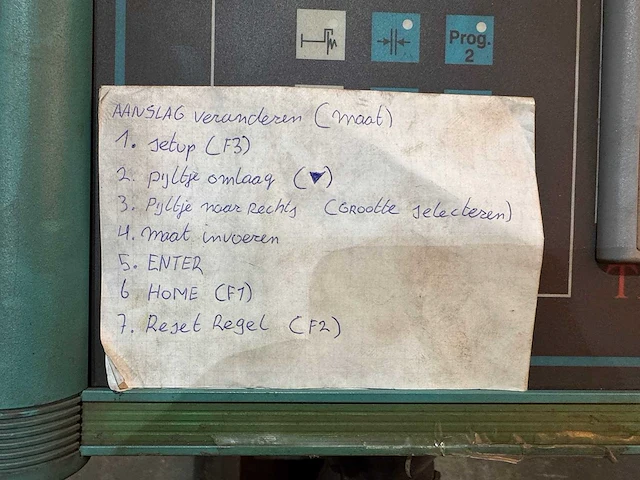 Prog.
2
AANSLAG veranderen (maat)
1. setup (F3)
2. pijltje omlaag (▼)
3. Pijltje naar Rechts (GROOTte selecteren)
4. maat invoeren
5. ENTER
6 HOME (F1)
7. Reset Regel (F2)
T